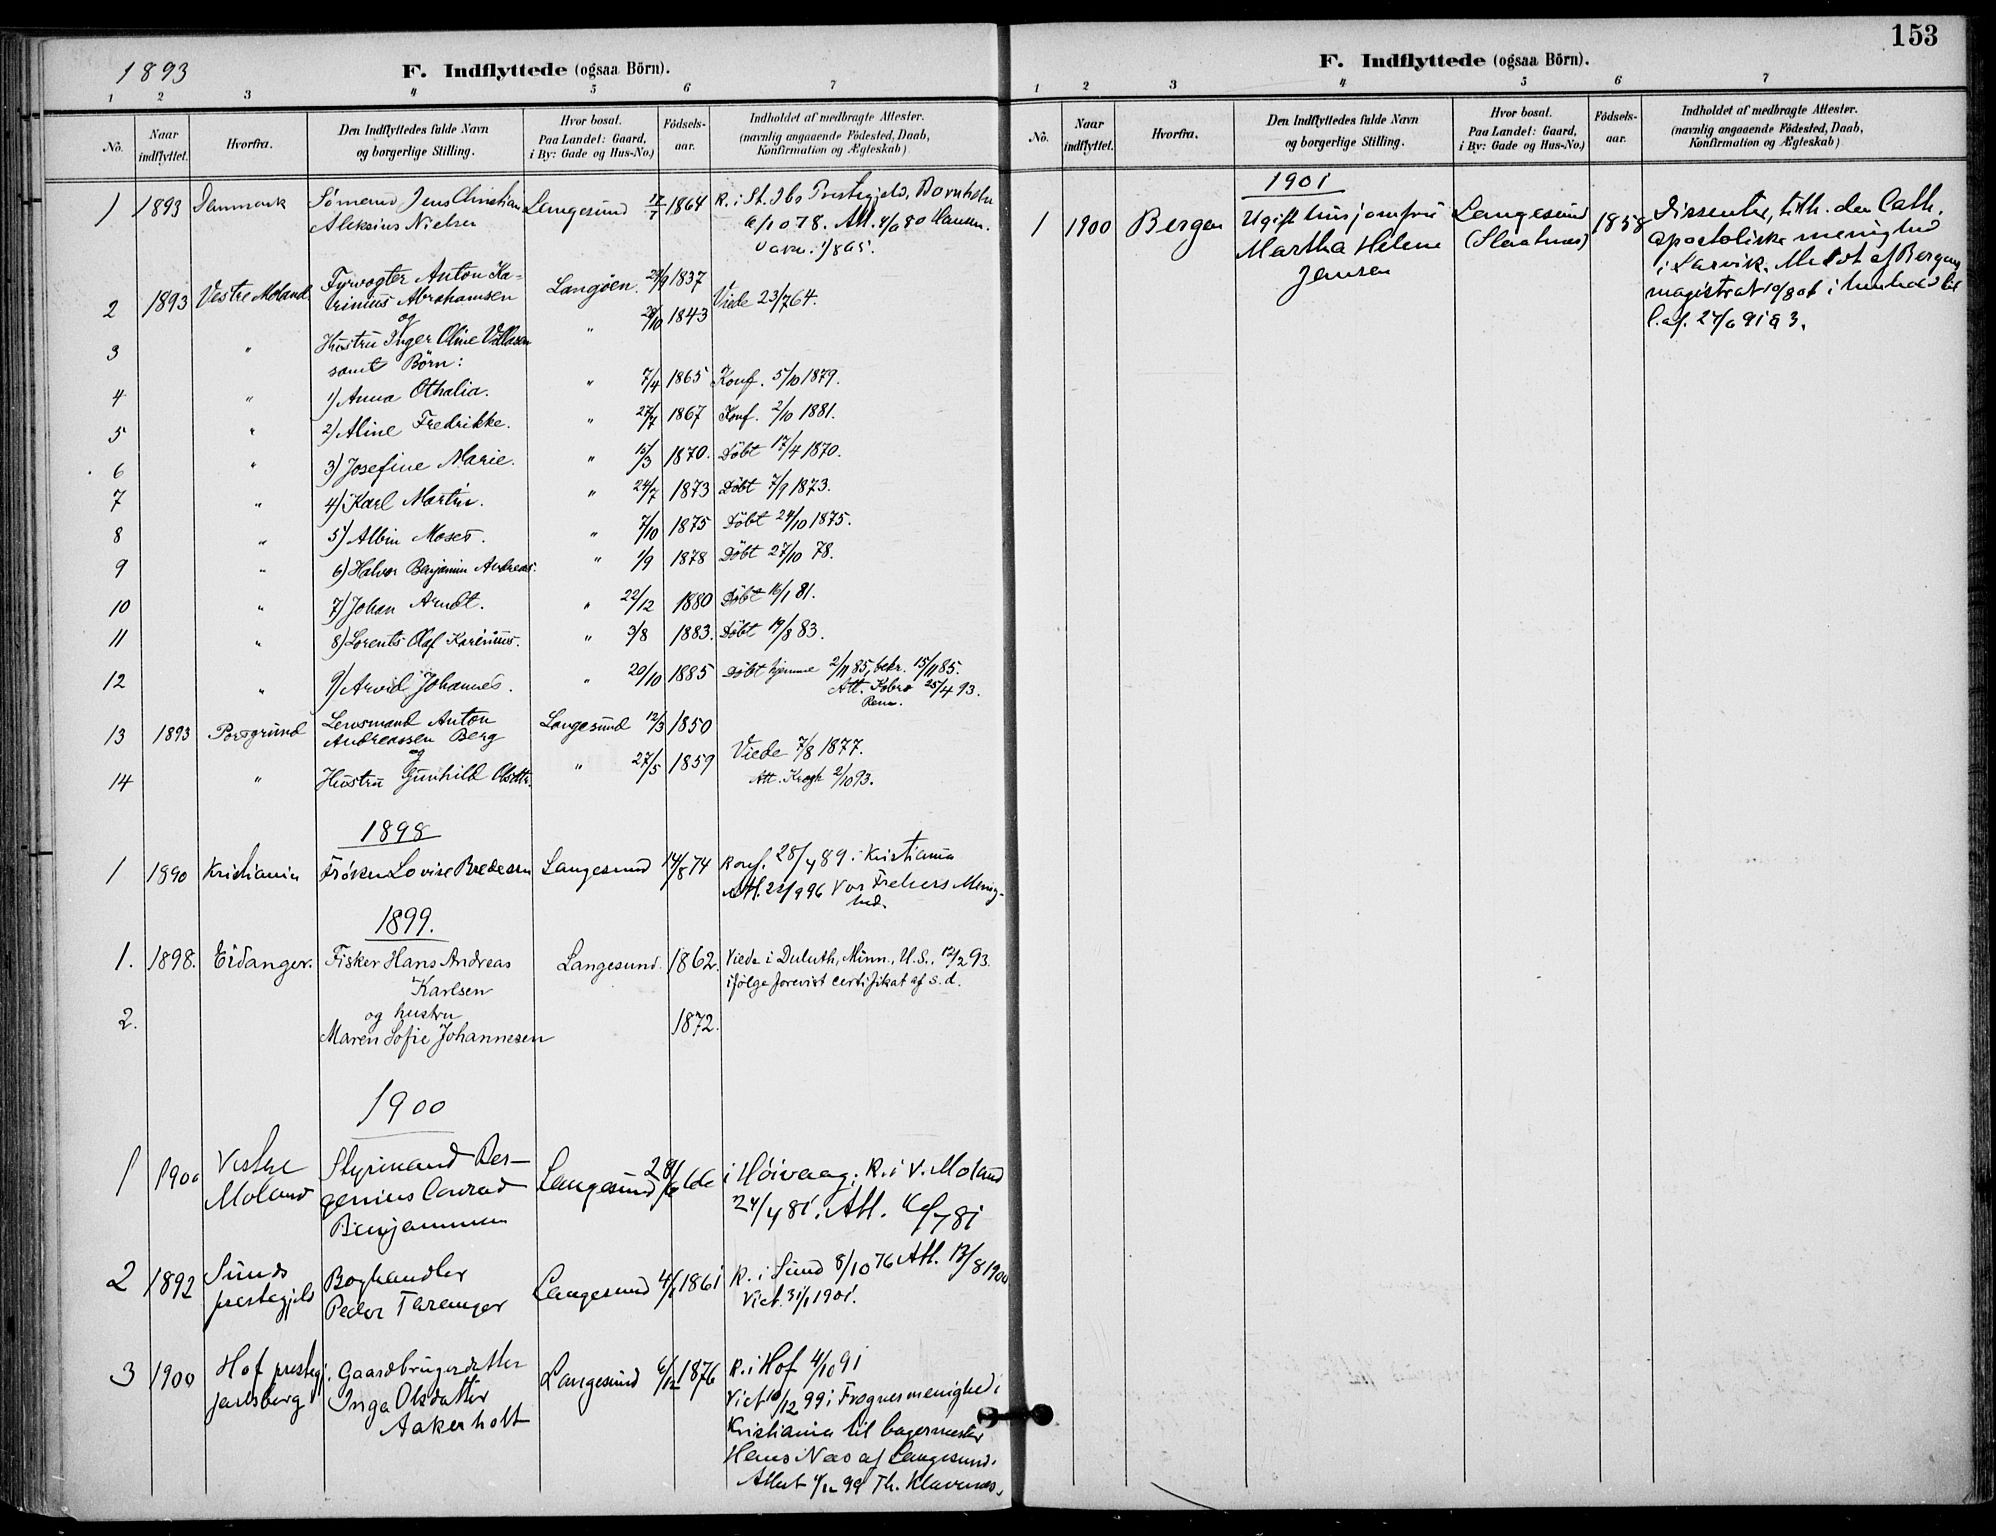 1893
F. Indflyttede (ogsaa Börn).
1 2 3 4 5 6 7
No.
Naar indflyttet.
Hvorfra.
Den Indflyttedes fulde Navn
og borgerlige Stilling.
Hvor bosat.
Paa Landet: Gaard,
i By: Gade og Hus-No.)
Födsels-
aar.
Indholdet af medbragte Attester.
(navnlig angaaende Födested, Daab,
Konfirmation og Ægteskab)
1 1893 Danmark Sömand Jens Christian Langesund 17/7 1864 K. i St. Ibs Prestegjeld, Bornholm
Aleksius Nielsen 6/10 78. Att. 4/6 80 Hansen.
2 1893 Vestre Moland Fyrvogter Anton Ka- Langöen. 29/9 1837
trinius Abrahamsen Viede 23/7 64.
og
3 " Hustru Inger Oline " 28/10 1843
samt Börn:
4 " 1) Anna Othalia. " 7/4 1865 Konf. 5/10 1879.
5 " 2) Aline Fredrikke. " 27/7 1867 Konf. 2/10 1881.
6 " 3) Josefine Marie. " 15/3 1870. Döbt 17/4 1870.
7 " 4) Karl Martin. " 24/7 1873 Döbt 7/9 1873.
8 " 5) Albin Moses. " 7/10 1875 Döbt 24/10 1875.
9 " 6) Halvor Benjamin Andreas. " 1/9 1878 Döbt 27/10 78.
10 " 7) Johan Arndt. " 22/12 1880 Döbt 16/1 81.
11 " 8) Lorents Olaf Karinius. " 3/8 1883. Döbt 19/8 83.
12 " 9) Arvid Johannes. " 20/10 1885 Döbt hjemme 2/11 85, bekr. 15/11 85.
Att. Kobro 25/4 93.
13 1893 Porsgrund Lensmand Anton Langesund 12/3 1850
Andreassen Berg
og Viede 7/8 1877.
14 " Hustru Gunhild Olsdtr. " 27/5 1859
Att. Krogh 2/10 93.
1898
1 1890 Kristiania Fröken Lovise Bredesen Langesund 14/8 74 Konf. 28/4 89 i Kristiania
Att. 22/9 96 Vor Frelsers Menig-
hed.
1899.
1. 1898. Eidanger. Fisker Hans Andreas Langesund. 1862. Viede i Duluth, Minn., U.S., 12/2 93.
Karlsen ifölge forevist certifikat af s. d.
og hustru
2. Maren Sofie Johannesen 1872.
1900
1 1900 Vestre Styrmand Ber- Langesund 28/6 66 i Höivaag; K. i V. Moland
Moland genius Conrad 24/4 81. Att.
Benjaminsen
2 1892 Sunds Boghandler Langesund 4/1 1861 K. i Sund 8/10 76 Att. 13/8 1900
prestegjeld Peder Taranger Viet. 31/1 1901.
3 1900 Hof prestegj. Gaardbrugerdatter Langesund 6/12 1876 K. i Hof 4/10 91
Jarlsberg Inga Olsdatter Viet 10/12 99 i Frogner menighed i
Aakerholt Kristiania til bagermester
Hans Næs af Langesund.
Attest 4/12 99 Th. Klaveness.
153
F. Indflyttede (ogsaa Börn).
1 2 3 4 5 6 7
No.
Naar indflyttet.
Hvorfra.
Den Indflyttedes fulde Navn
og borgerlige Stilling.
Hvor bosat.
Paa Landet: Gaard,
i By: Gade og Hus-No.)
Födsels-
aar.
Indholdet af medbragte Attester.
(navnlig angaaende Födested, Daab,
Konfirmation og Ægteskab)
1901
1 1900 Bergen Ugift husjomfru Langesund 1858 Dissenter, tilh. den Cath.
Martha Helene apostoliske menighed
Jensen i Larvik. Meldt af Bergens
magistrat 10/8 01 i henhold til
l. af. 27/6 91 § 3.